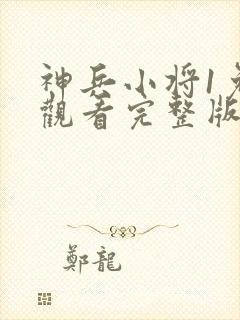 神兵小将1免
觀看完整版
鄭龍